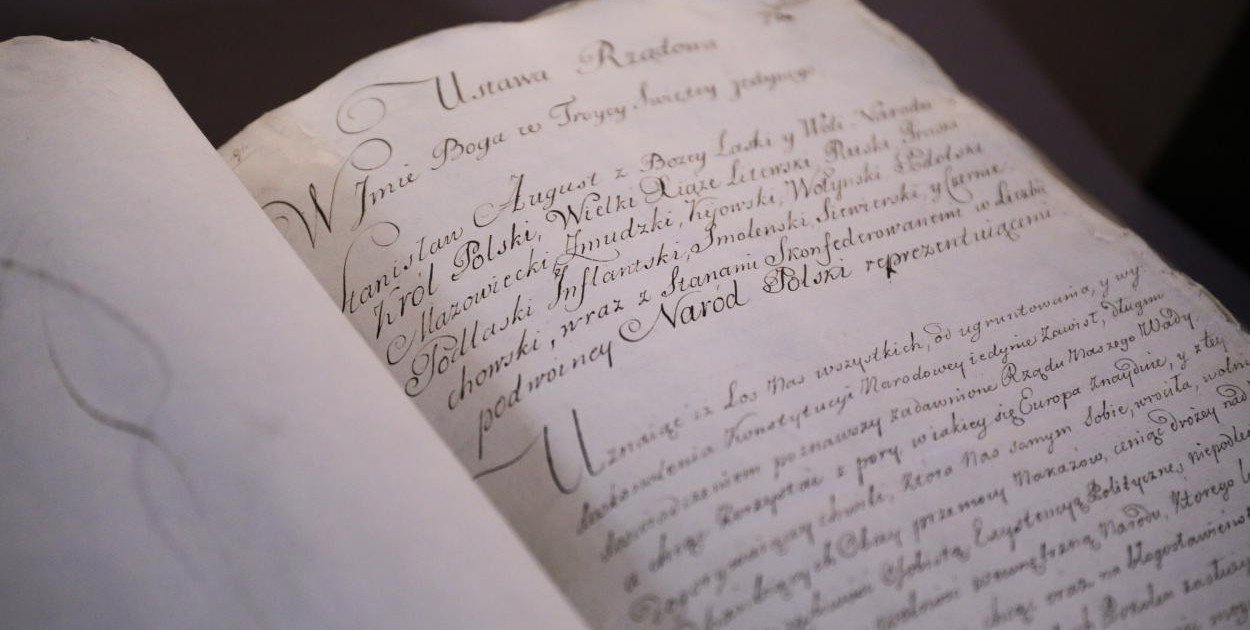 Ustawa Rządowa
W Imie Boga w Troycy Swiętey jedynego
Stanisław August z Bozey Łaski y Woli Narodu
Krol Polski, Wielki Xiąże Litewski, Ruski, Pruski
Mazowiecki, Zmudzki, Kijowski, Wołynski, Podolski
Podlaski Inflantski, Smolenski, Siewierski, y Czernie-
chowski, wraz z Stanami Skonfederowanemi w Liczbie
podwoiney Naród Polski reprezentuiącemi
Uznaiąc iz Los Nas wszystkich, od ugruntowania, y wy-
doskonalenia Konstytucyi Narodowey iedynie zawisł, długim
doswiadczeniem poznawszy zadawnione Rządu Naszego Wady
a chcąc korzystać z pory, w iakiey się Europa znayduie, y z tey
dogorywaiącey chwili, ktora Nas samym Sobie, wrociła, wolni
hanbiących Obcey przemocy Nakazow, ceniąc drożey nad
Exystencyą Polityczną, niepodle-
zewnętrzną Narodu, ktorego
chcąc oraz na błogosławieństwo